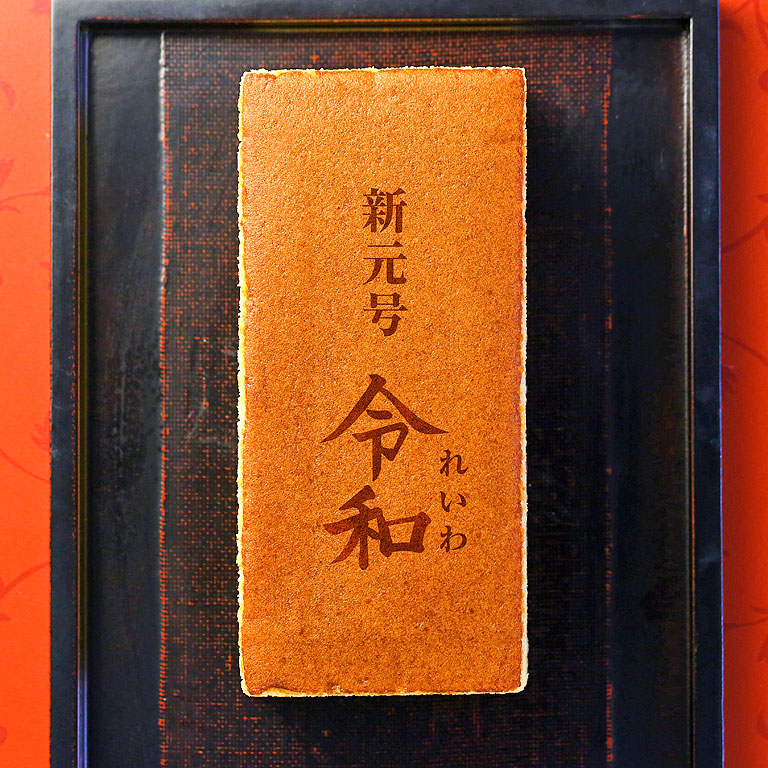 新元号
令和
れいわ